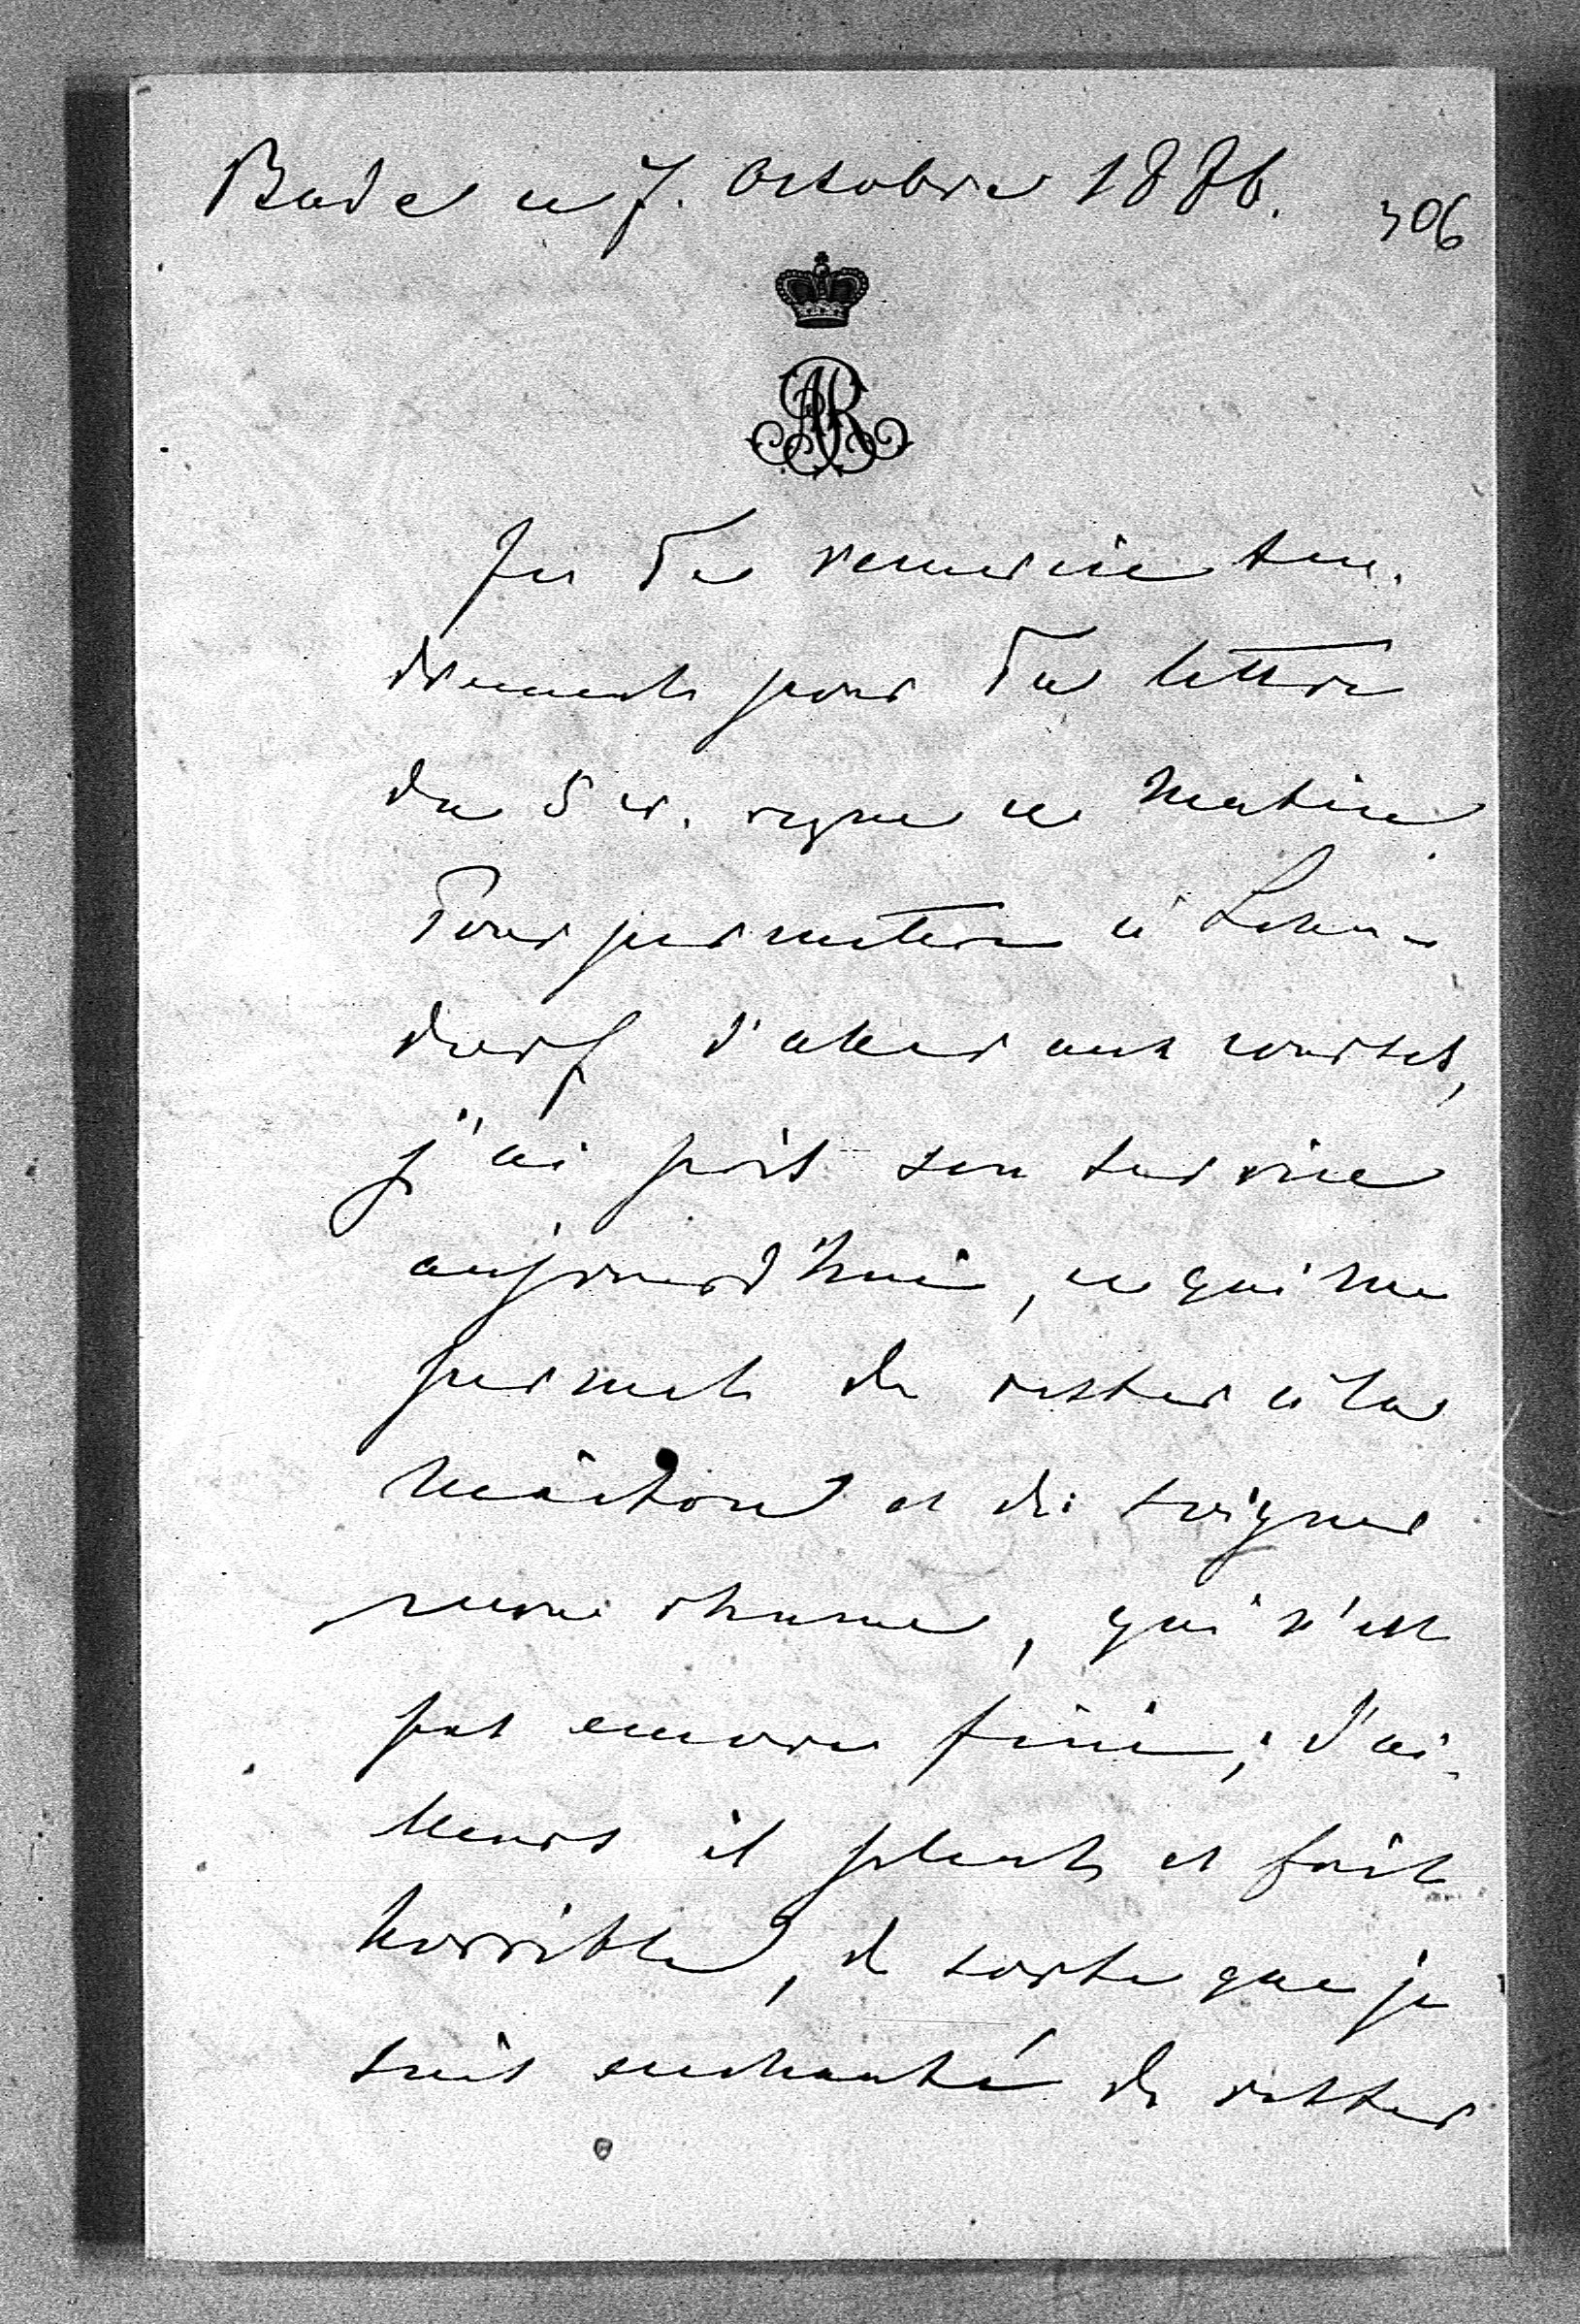 Bade ce 7. Octobre 1886.
306
AR
Je Te remercie ten-
drement pour Ta lettre
du 5 cr. reçue ce matin.
Pour permettre à
dorf d'aller aux courses,
j'ai pris son service
aujourd'hui, ce qui me
permet de rester à la
maison et de soigner
mon rhume, qui n'est
pas encore fini; d'ai-
lleurs il pleut et fait
horrible, de sorte que je
suis enchanté de rester